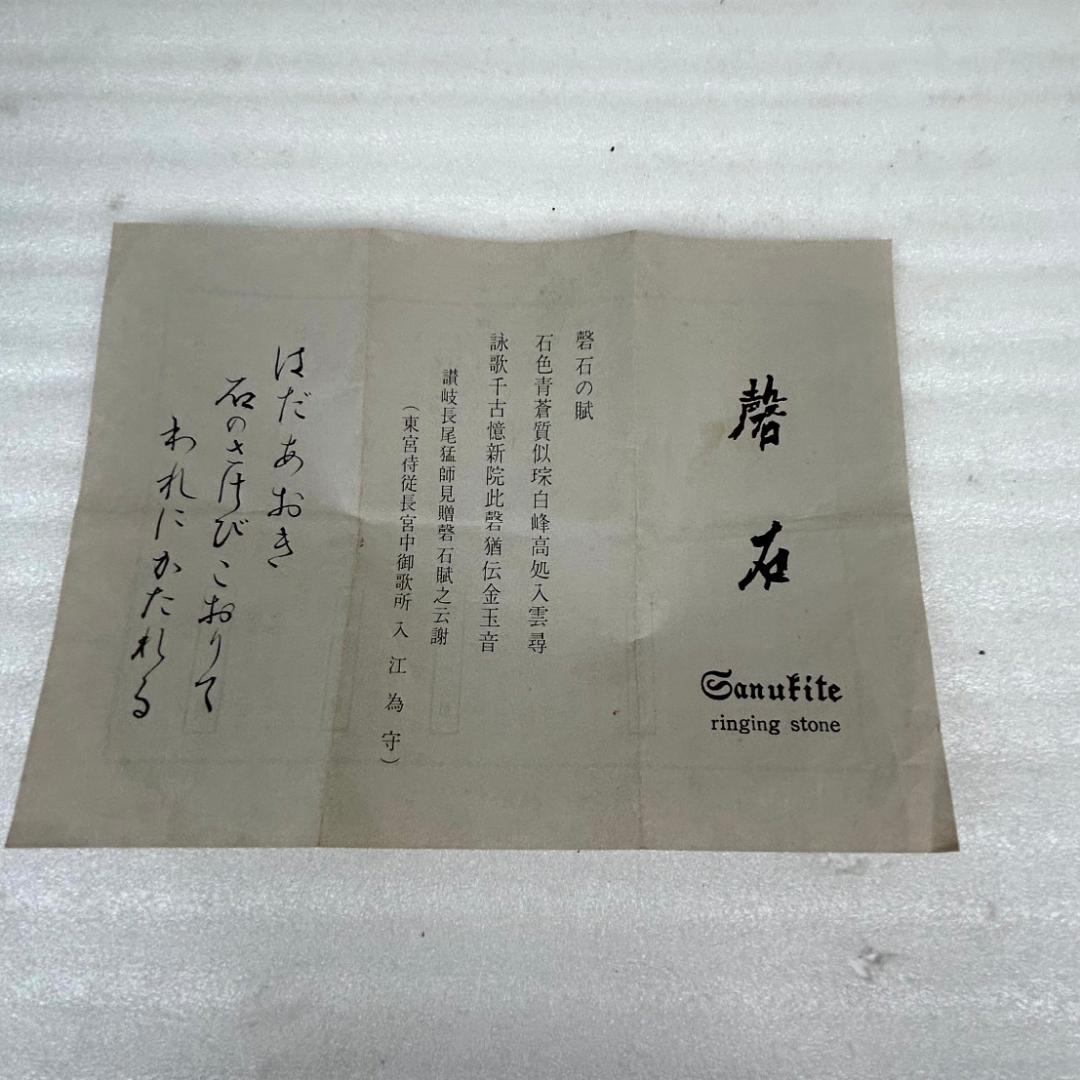 磬石
Sanukite
ringing stone
磬石の賦
石色青蒼質似琮白峰高処入雲尋
詠歌千古憶新院此磬猶伝金玉音
讃岐長尾猛師見贈磬石賦之云謝
（東宮侍従長宮中御歌所 入江為守）
はだあおき
石のさけびこおりて
われにかたれる